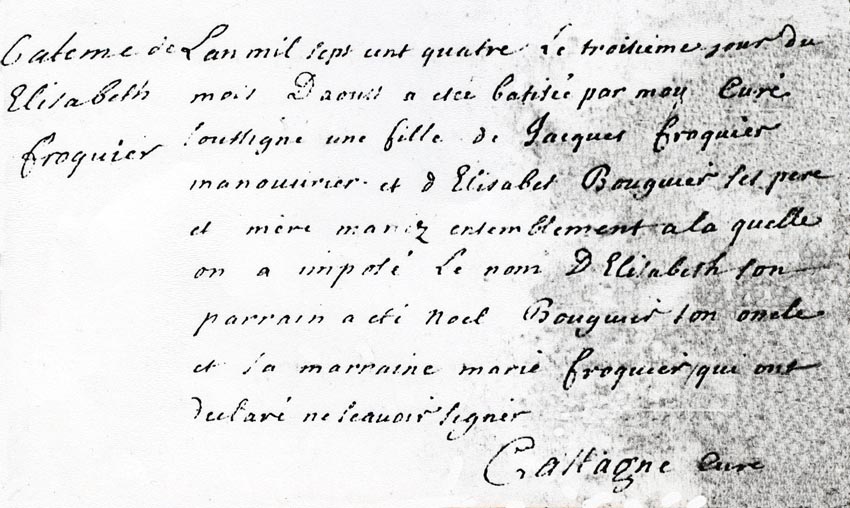 Bateme de
Elisabeth
froquier
Lan mil sept cent quatre le troisieme jour du
mois Daoust a etee batisée par moy Curé
soussigné une fille de Jacques froquier
manouvrier et d Elisabet Bouquier ses pere
et mère mariez ensemblement a la quelle
on a imposé le nom D Elisabeth son
parrain a eté Noel Bouquier son oncle
et sa marraine marie froquier qui ont
declaré ne scavoir signer
Castagne Curé